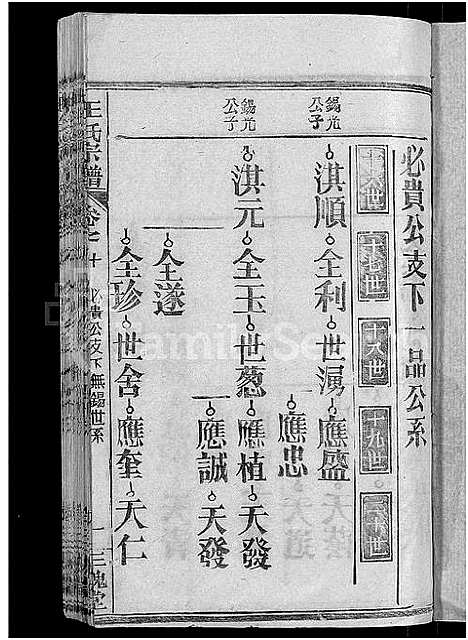 必貴公支下一品公系
十六世
十七世
十八世
十九世
二十世
錫光公子
淇順 全利 世溽 應盛
應忠
錫光公子
淇元 全玉 世葱 應植 天發
應誠 天發
全遂
全珍 世舍 應奎 天仁
王氏宗譜
卷之十
必貴公支下無錫世系
三槐堂
FamilySearch